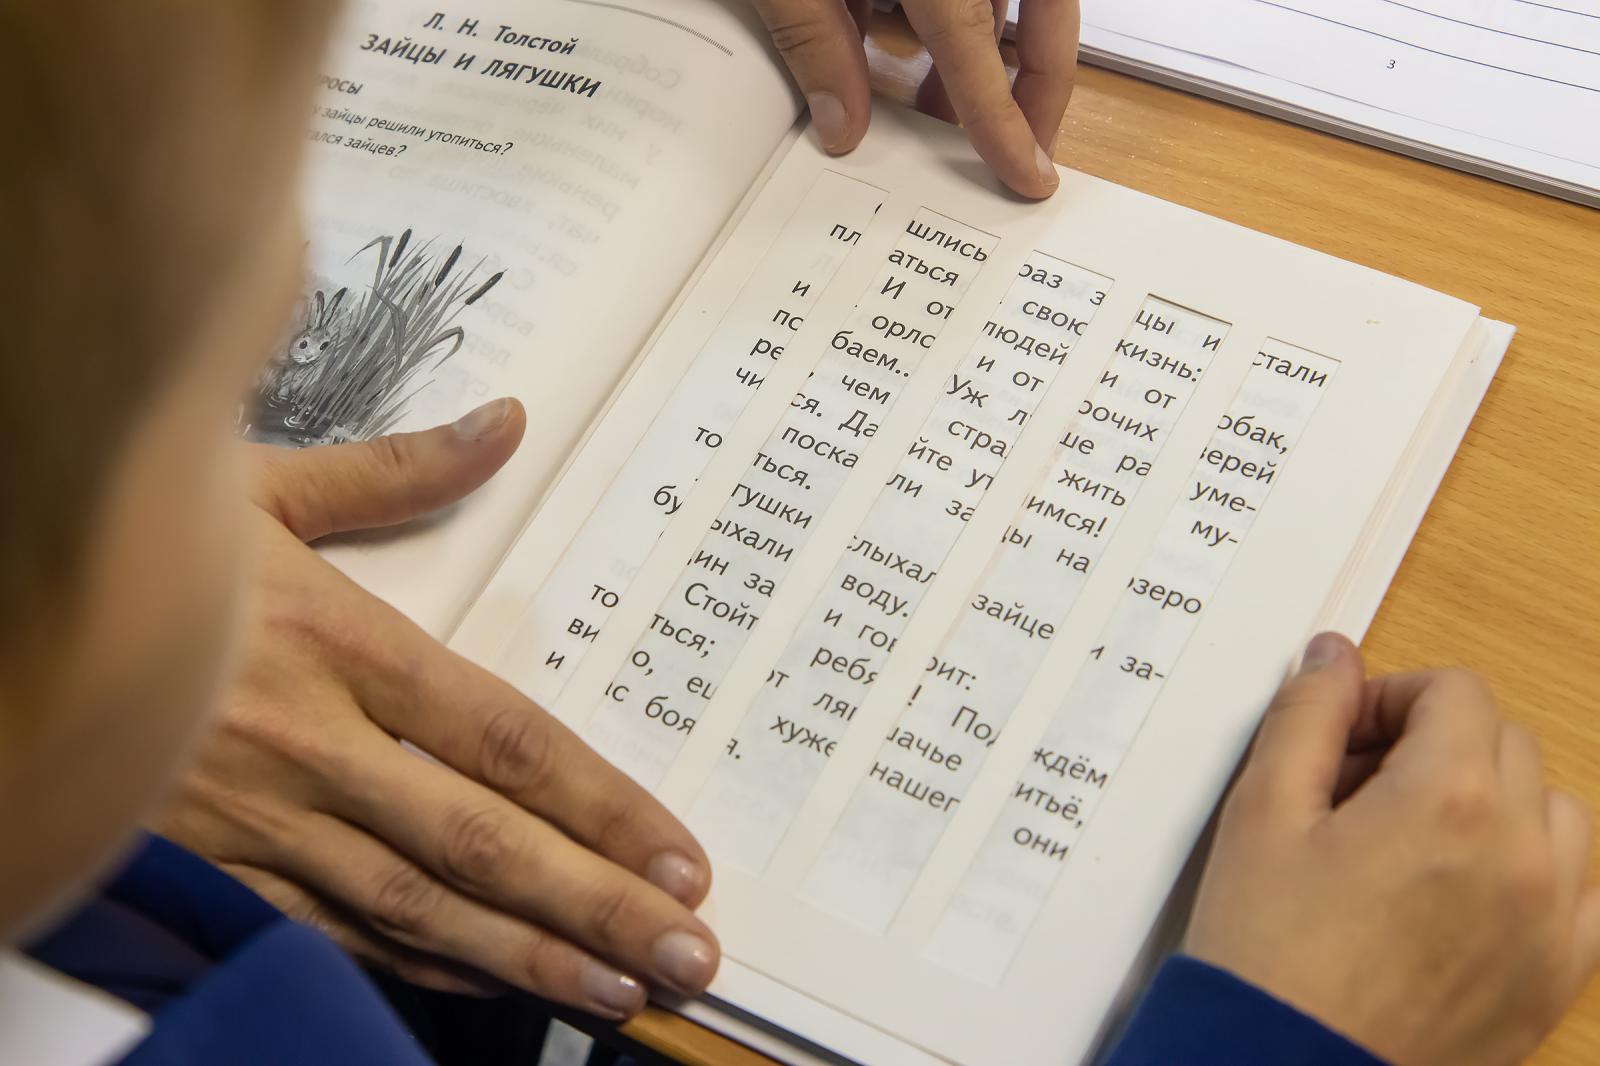 Л. Н. Толстой
ЗАЙЦЫ И ЛЯГУШКИ
РОСЫ
у зайцы решили утопиться?
гался зайцев?
3
шлись раз з цы и стали
пл аться свою жизнь:
И от людей и от обак,
и орло и от рочих верей
по баем.. Уж л ше ра уме-
ре , чем стра жить му-
чи ся. Да йте ут имся!
поска ли за цы на озеро
то ться.
гушки слыхал зайце и за-
бу ыхали воду.
ин за и гов рит:
Стойт ребя ! По ждём
то ться; от ляг ачье итьё,
ви о, ещ хуже нашег они
и ас боя я.